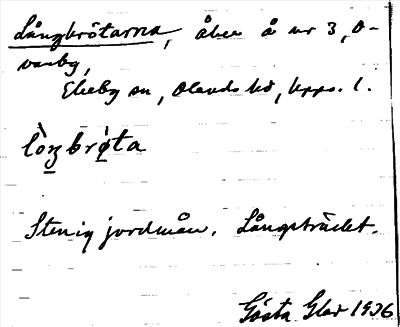 Långbrötarna, åker å nr 3, O-
vanby,
Ekeby sn, Olands hd, Upps. l.
lò̀ŋbrø̀ta
Stenig jordmån. Långsträckt.
Gösta Glad 1936